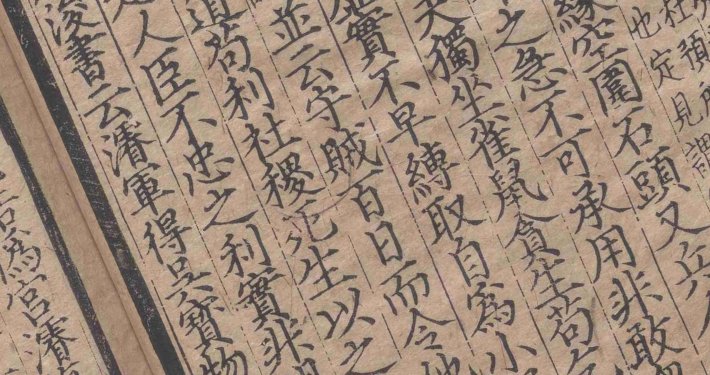 杜預
也定見謂
緣空圍石頭又兵
之急不可承用非敢
夫獨坐雀鼠貪生苟
實不早縛取自為小
並云守賊百日而令他
道苟利社稷死生以之
人臣不忠之利實非
浚書云濬軍得吳寶物
為官濬